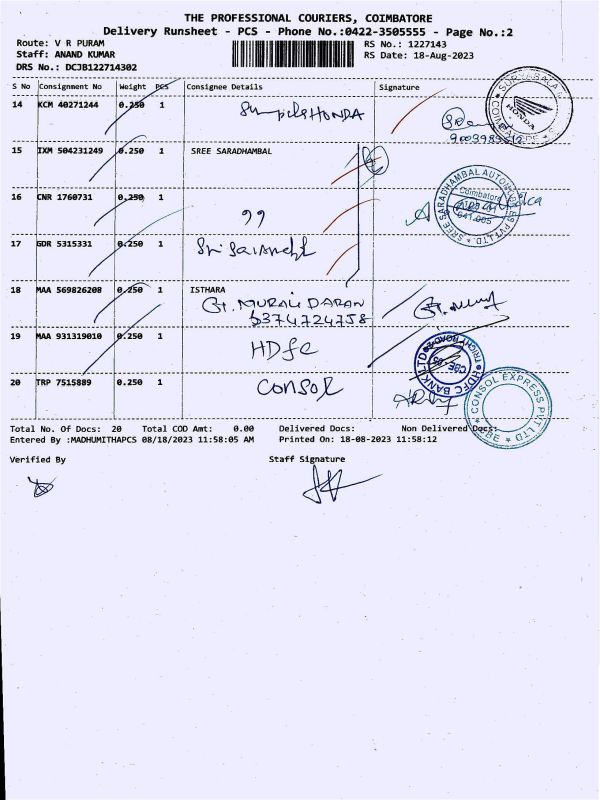 THE PROFESSIONAL COURIERS, COIMBATORE
Delivery Runsheet - PCS - Phone No.:0422-3505555 - Page No.:2
Route: V R PURAM
RS No.: 1227143
Staff: ANAND KUMAR
RS Date: 18-Aug-2023
DRS No.: DCJB122714302
S No Consignment No Weight PCS Consignee Details Signature
14 KCM 40271244 0.250 1 HONDA
HONDA
15 IXM 504231249 0.250 1 SREE SARADHAMBAL
SREE SARADHAMBAL AUTOMOBILES PVT LTD.
Coimbatore
641 005
16 CNR 1760731 0.250 1 99
17 GDR 5315331 0.250 1
18 MAA 569826208 0.250 1 ISTHARA
G. MURALI DARAN
6374724758
19 MAA 931319010 0.250 1 HDFC
HDFC BANK LTD
TRICHY ROAD
CBE
20 TRP 7515889 0.250 1 CONSOL
CONSOL EXPRESS PVT LTD
CBE
Total No. Of Docs: 20 Total COD Amt: 0.00 Delivered Docs: Non Delivered Docs:
Entered By :MADHUMITHAPCS 08/18/2023 11:58:05 AM Printed On: 18-08-2023 11:58:12
Verified By Staff Signature